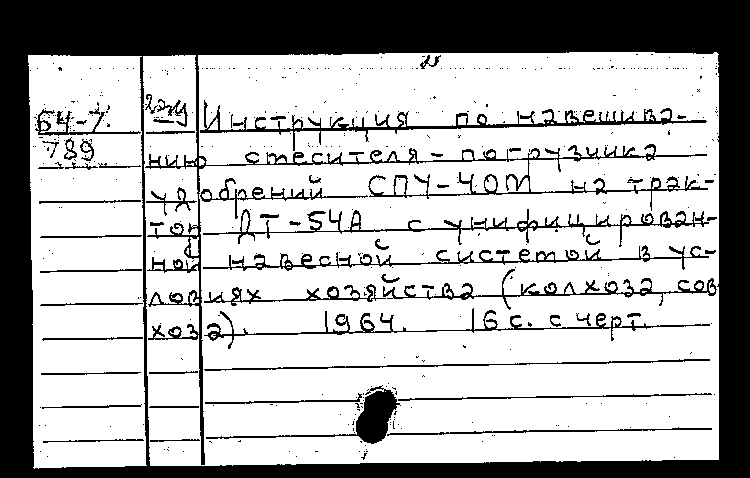 64-7. 2эку Инструкция по навешива-
789 нию смесителя-погрузчика
удобрений СПУ-40М на трак-
тор ДТ-54А с унифицирован-
ной навесной системой в ус-
ловиях хозяйства (колхоза, сов-
хоза). 1964. 16 с. с черт.